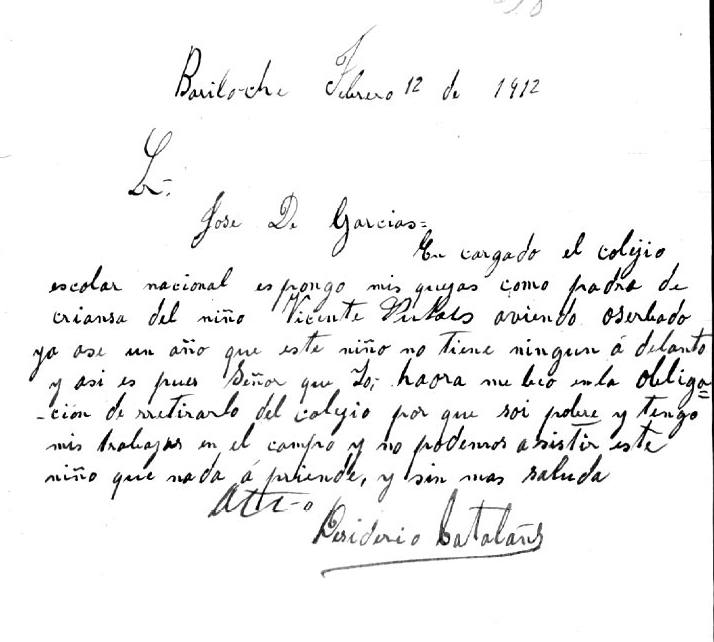 Bariloche Febrero 12 de 1912
Sr.
Jose D. Garcias=
En cargado el colejio
escolar nacional espongo mis quejas como padre de
criansa del niño Vicente aviendo oserbado
ya ase un año que este niño no tiene ningun á delanto
y asi es pues Señor que Yo, haora me beo en la obliga=
-ción de rretirarlo del colejio por que soi pobre y tengo
mis trabajos en el campo y no podemos asistir este
niño que nada á priende, y sin mas saluda
Att-o
Desiderio Catalans